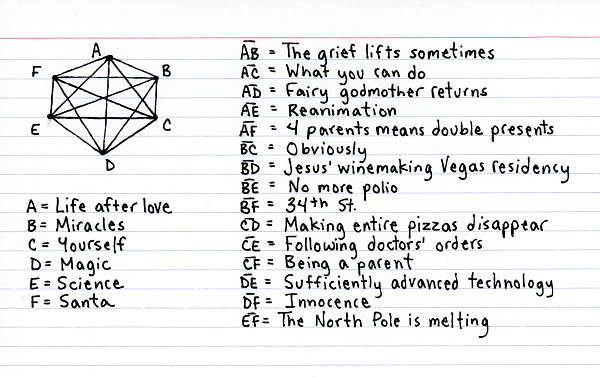 A
F
B
E
C
D
A = Life after love
B = Miracles
C = Yourself
D = Magic
E = Science
F = Santa
AB = The grief lifts sometimes
AC = What you can do
AD = Fairy godmother returns
AE = Reanimation
AF = 4 parents means double presents
BC = Obviously
BD = Jesus' winemaking Vegas residency
BE = No more polio
BF = 34th St.
CD = Making entire pizzas disappear
CE = Following doctors' orders
CF = Being a parent
DE = Sufficiently advanced technology
DF = Innocence
EF = The North Pole is melting